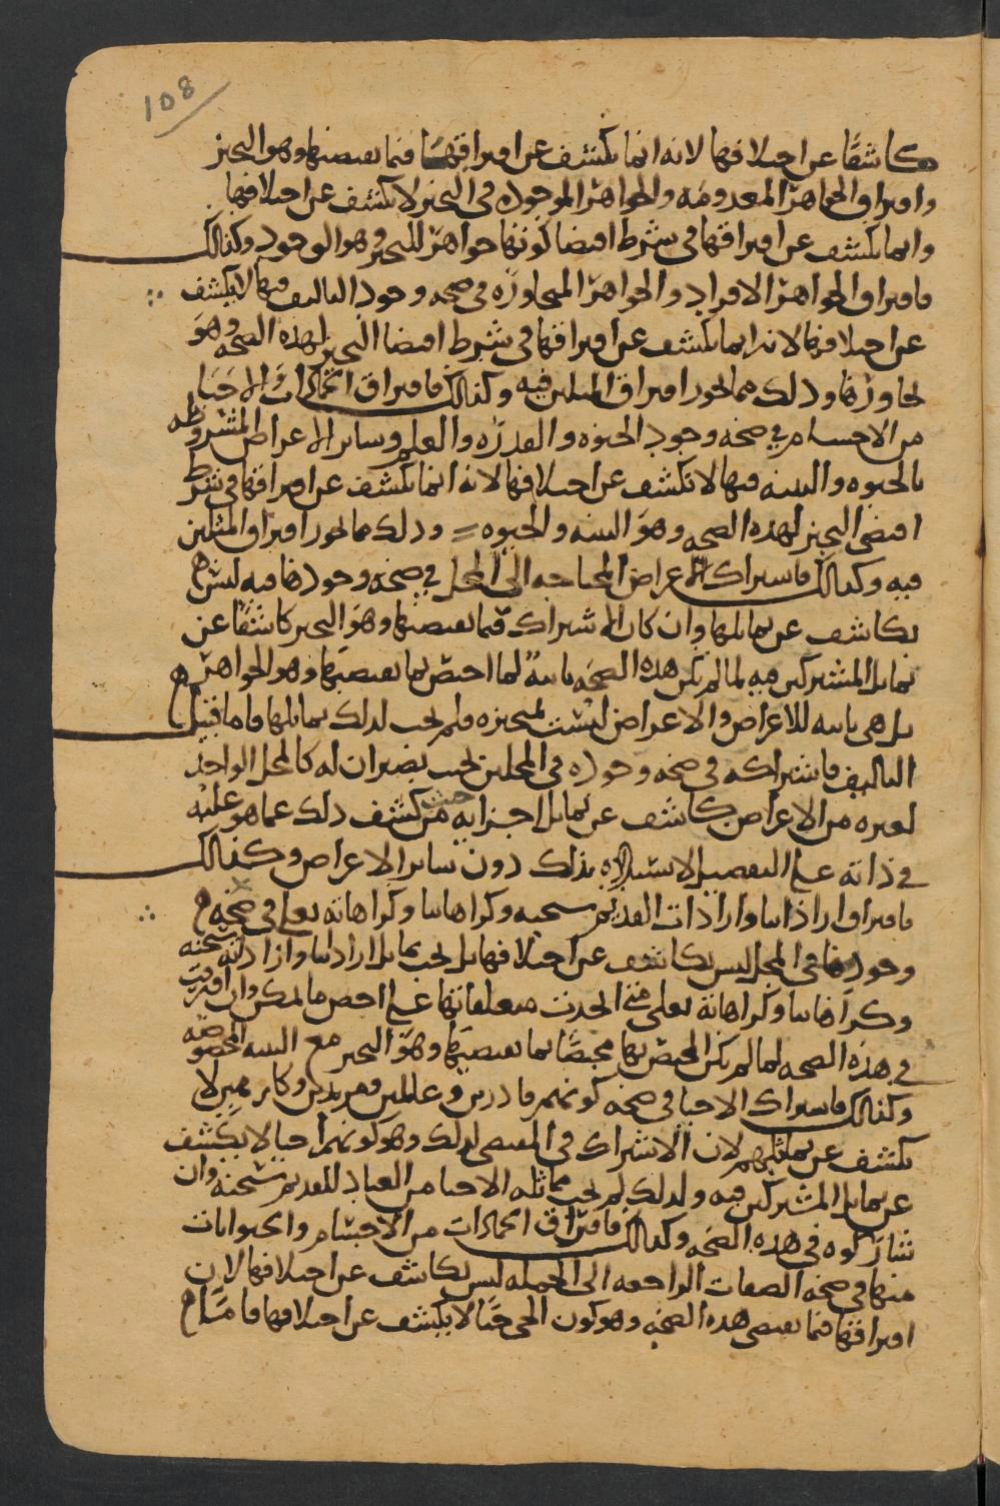 108
كاشفًا عن اختلافها لانه انما يكشف عن افتراقها فيما يقتضيها وهو التحيز
وافتراق الجواهر المعدومه والجواهر الموجوده في التحيز لا يكشف عن اختلافها
وانما يكشف عن افتراقها في شرط اقتضا كونها جواهر للتحيز وهو الوجود وكذلك
فافتراق الجواهر الافراد والجواهر المتجاوره في صحه وجود التاليف فيها لا يكشف
عن اختلافها لانه انما يكشف عن افتراقها في شرط اقتضا التحيز لهذه الصحه وهو
تجاورها وذلك مما يجوز افتراق المثلين فيه وكذلك فافتراق الجمادات والاحيا
من الاجسام في صحه وجود الحيوه والقدره والعلم وساير الاعراض المشروطه
بالحيوه والبنيه فيها لا تكشف عن اختلافها لانه انما يكشف عن افتراقها في شرط
اقتضى التحيز لهذه الصحه وهو البنيه والحيوه = وذلك مما يجوز افتراق المثلين
فيه وكذلك فاشتراك الاعراض المحتاجه الى المحل في صحه وجودها فيه ليس
بكاشف عن تماثلها وان كان الاشتراك فيما يقتضيها وهو التحيز كاشفًا عن
تماثل المشتركين فيه لما لم يكن هذه الصحه ثابتةً لما اختص بما يقتضيها وهو الجواهر
بل هي ثابته للاعراض والاعراض ليست بمتحيزه فلم يجب لذلك تماثلها فاما قبيل
التاليف فاشتراكه في صحه وجوده في المحلين بحيث يصيران له كالمحل الواحد
لغيره من الاعراض كاشف عن تماثل اجزايه من حيث كشف ذلك عما هو عليه
في ذاته على التفصيل لاستبداده بذلك دون ساير الاعراض وكذلك
فافتراق اراداتنا وارادات القديم سبحنه وكراهاتنا وكراهاته تعلى في صحه
وجودها في المحل ليس بكاشف عن اختلافها بل يجب تماثل اراداتنا واراداته سبحنه
وكراهاتنا وكراهاته تعلى متى اتحدت متعلقاتها على اخص ما يمكن وان افترقت
في هذه الصحه لما لم يكن المختص بها مختصًا بما يقتضيها وهو التحيز مع البنيه المخصوصه
وكذلك فاشتراك الاحيا في صحه كونهم قادرين وعالمين ومريدين وكارهين لا
يكشف عن تماثلهم لان الاشتراك في المقتضى لذلك وهو كونهم احيا لا يكشف
عن تماثل المشتركين فيه ولذلك لم يجب مماثله الاحيا من العباد للقديم سبحنه وان
شاركوه في هذه الصحه وكذلك فافتراق الجمادات من الاجسام والحيوانات
منها في صحه الصفات الراجعه الى الجمله ليس بكاشف عن اختلافها لان
افتراقها فيما يقتضى هذه الصحه وهو كون الحي حيًا لا يكشف عن اختلافها فاما